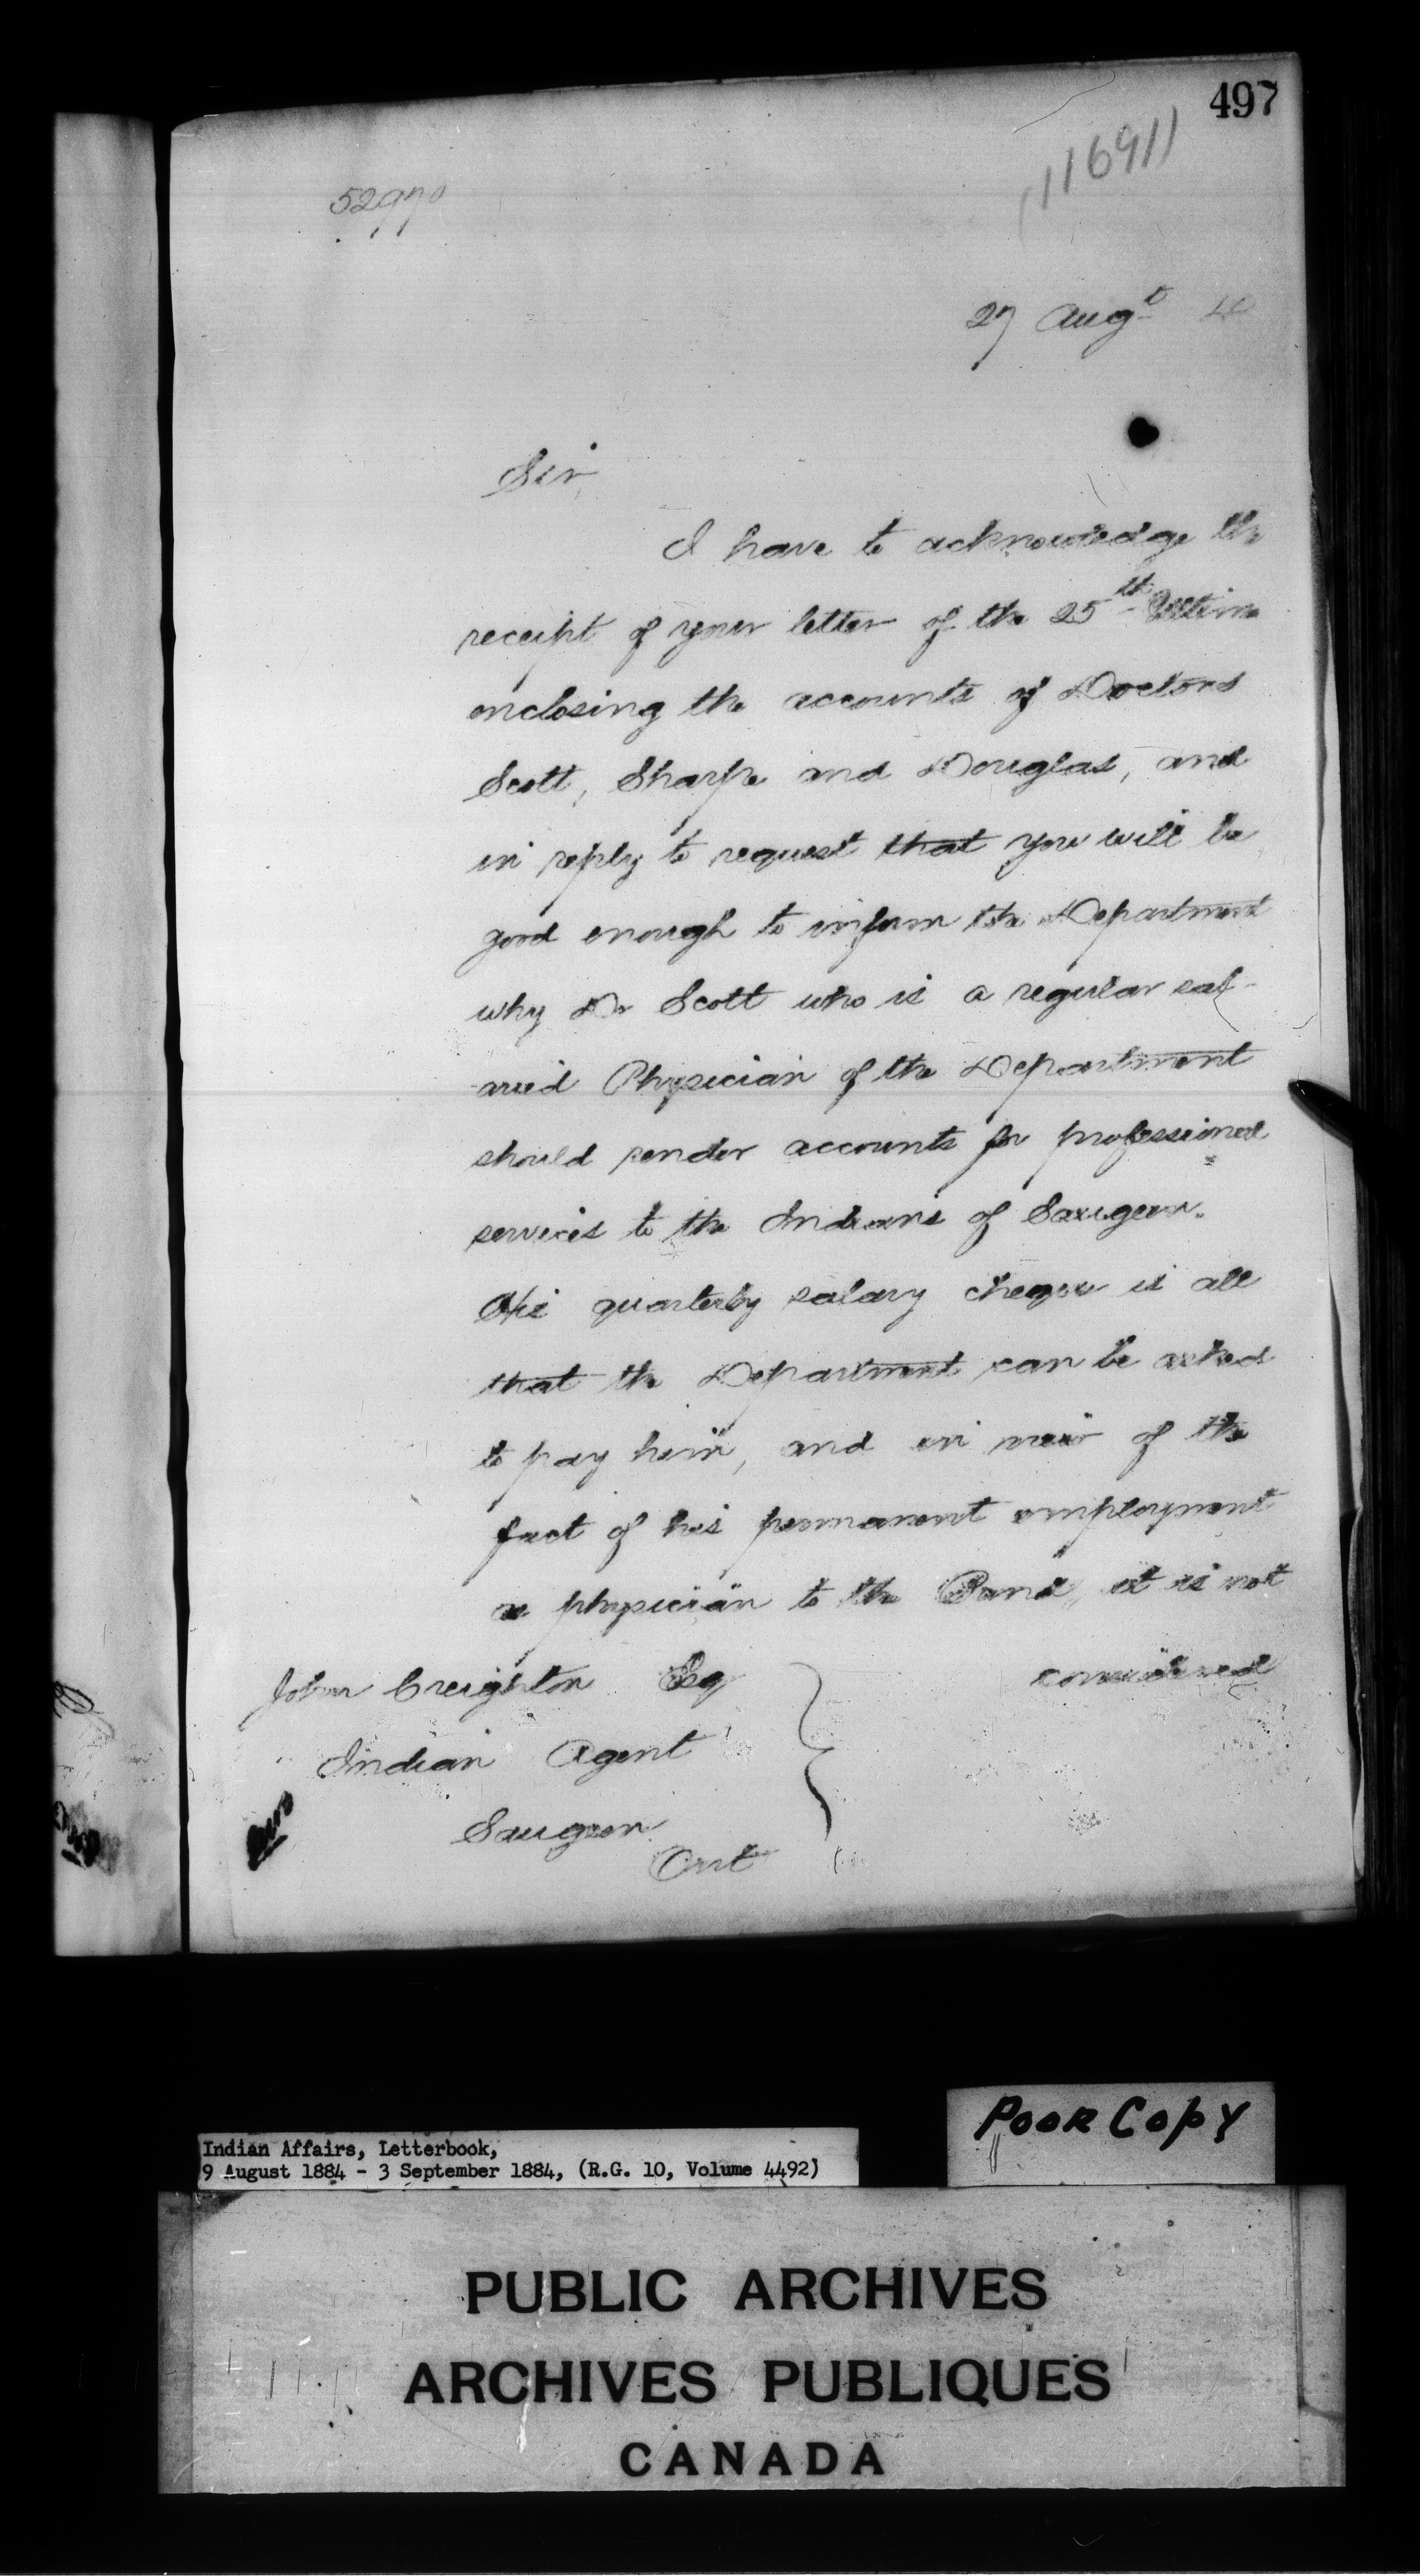 497
11691
52970
27 Augt 4
Sir
I have to acknowledge the
receipt of your letter of the 25th Ultimo
enclosing the accounts of Doctors
Scott, Sharpe and Douglas, and
in reply to request that you will be
good enough to inform the Department
why Dr Scott who is a regular sal-
-aried Physician of the Department
should render accounts for professional
services to the Indians of Saugeen.
His quarterly salary cheque is all
that the Department can be asked
to pay him, and in view of the
fact of his permanent employment
as physician to the Band, it is not
considered
John Creighton Esq
Indian Agent
Saugeen
Ont
Poor Copy
Indian Affairs, Letterbook,
9 August 1884 - 3 September 1884, (R.G. 10, Volume 4492)
PUBLIC ARCHIVES
ARCHIVES PUBLIQUES
CANADA